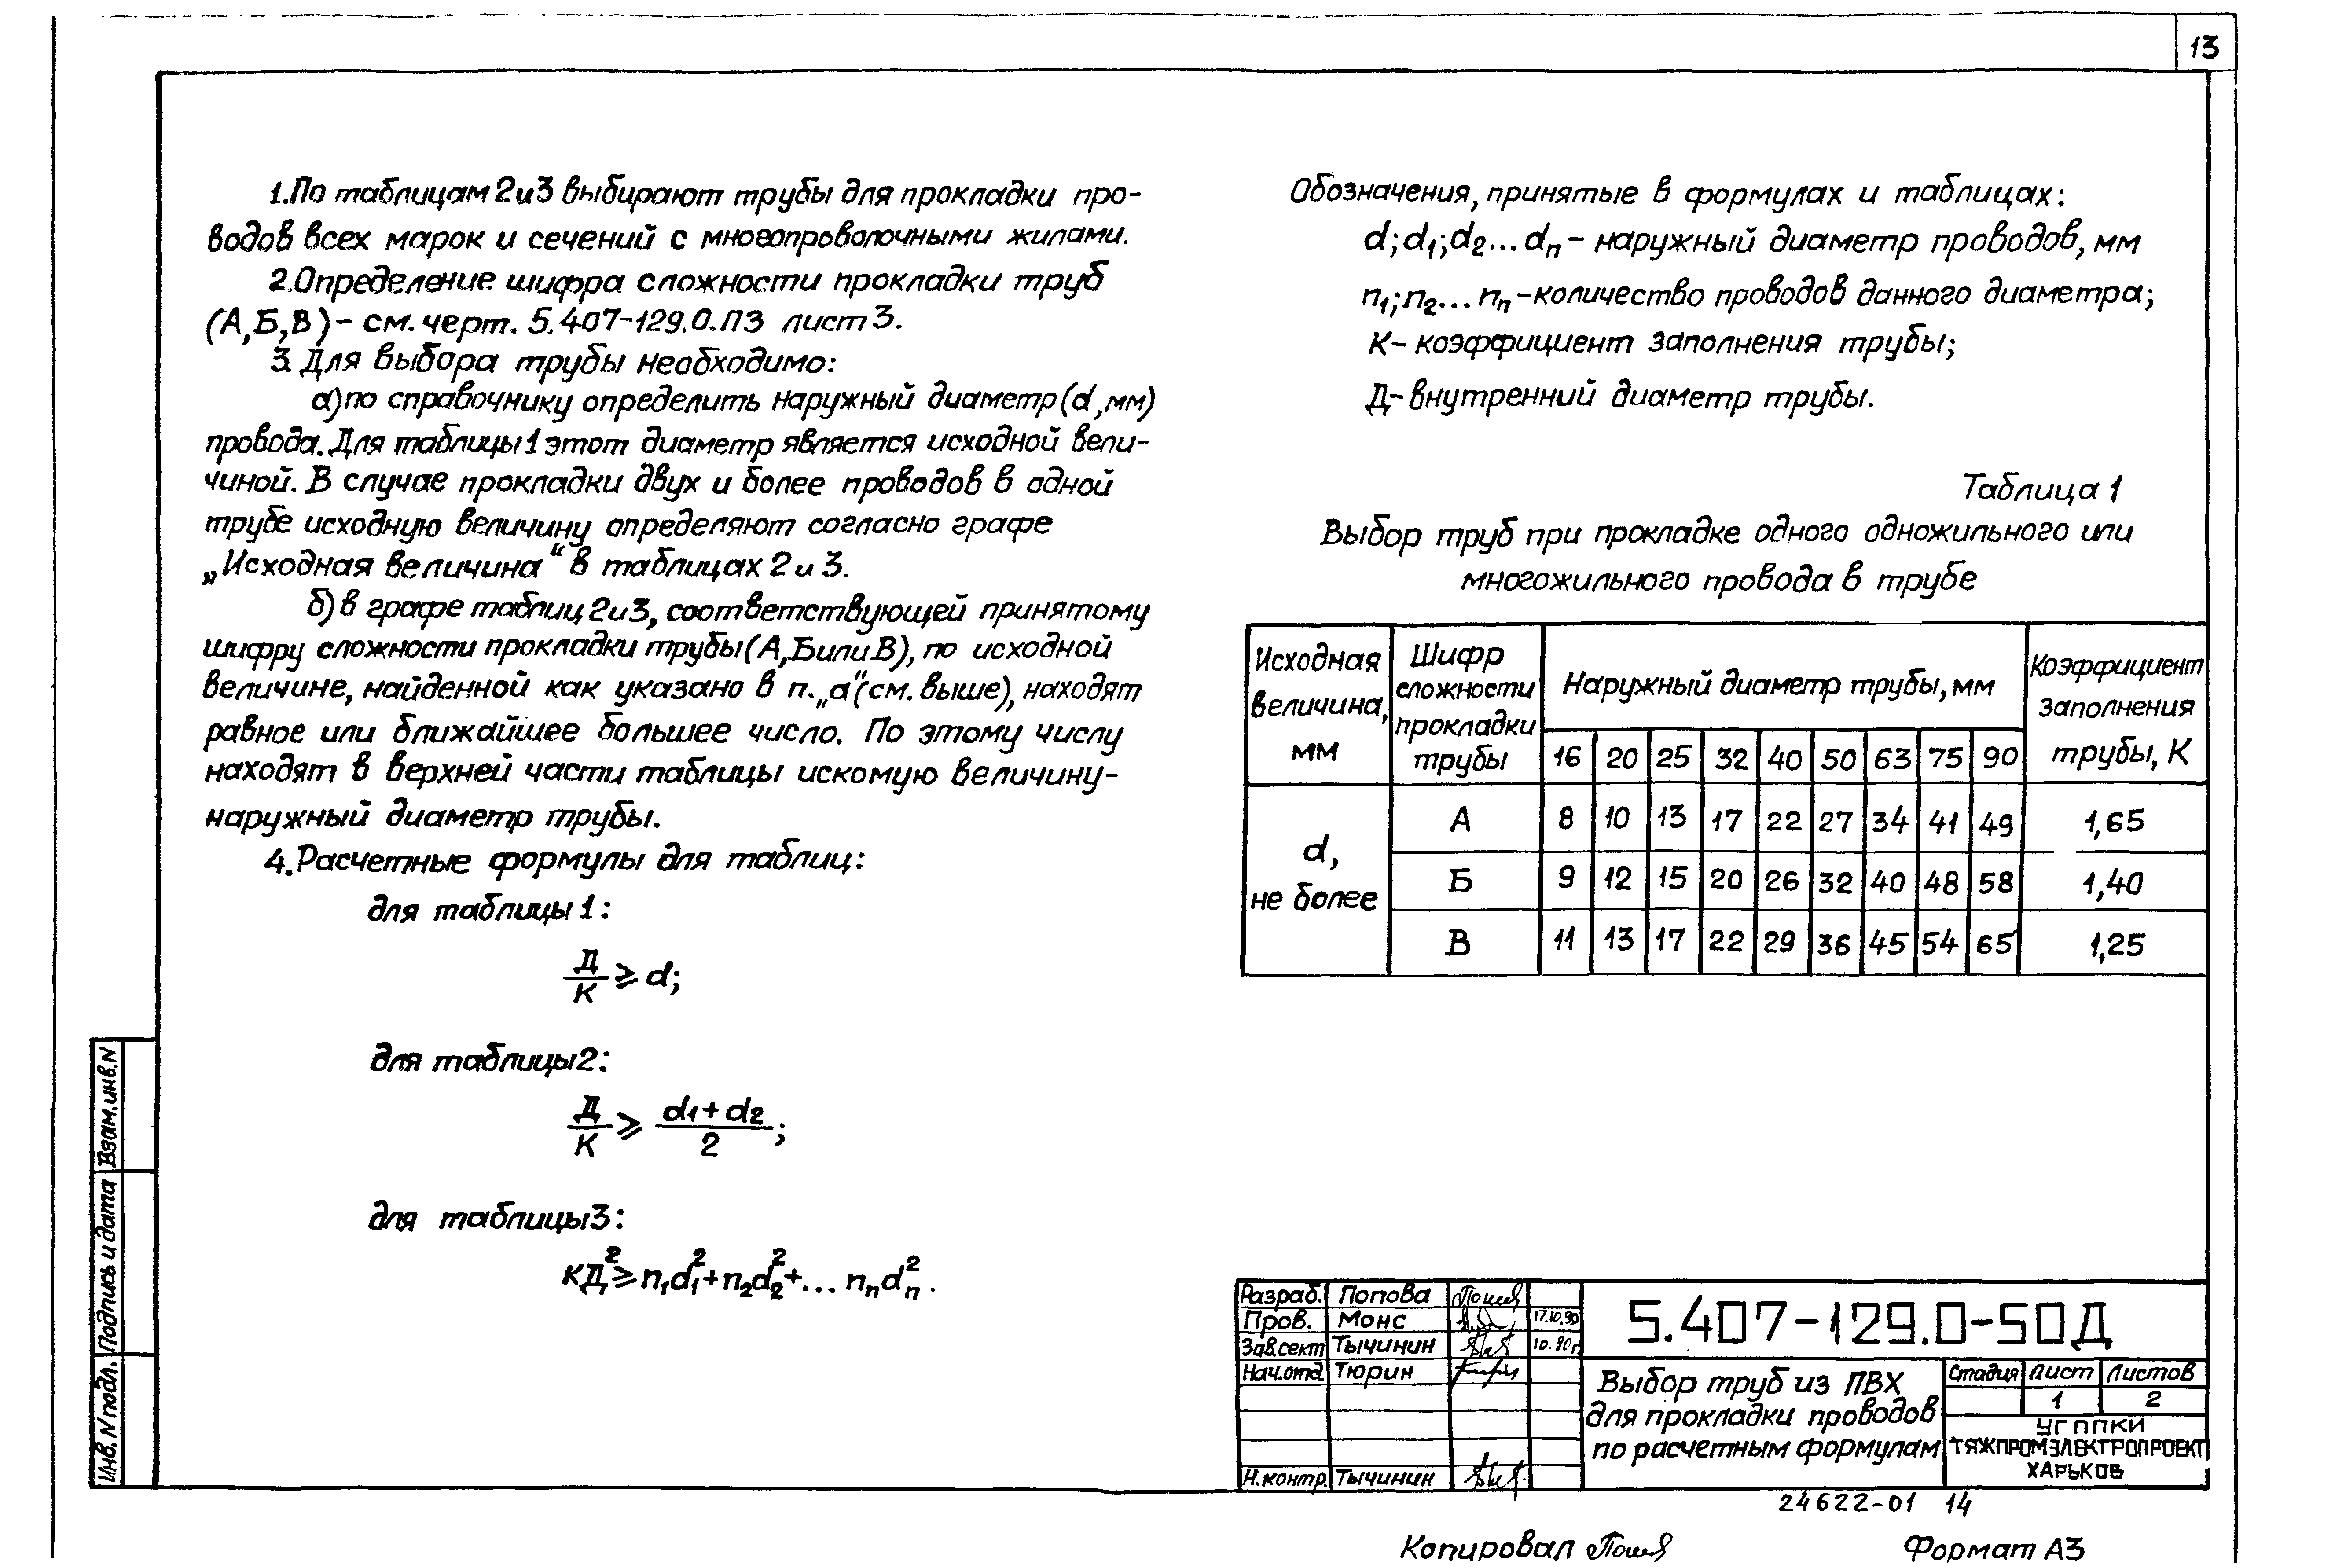 13
1. По таблицам 2 и 3 выбирают трубы для прокладки про-
водов всех марок и сечений с многопроволочными жилами.
2. Определение шифра сложности прокладки труб
(А,Б,В) – см. черт. 5.407-129.0.ПЗ лист 3.
3. Для выбора трубы необходимо:
а) по справочнику определить наружный диаметр (d, мм)
провода. Для таблицы 1 этот диаметр является исходной вели-
чиной. В случае прокладки двух и более проводов в одной
трубе исходную величину определяют согласно графе
„Исходная величина“ в таблицах 2 и 3.
б) в графе таблиц 2 и 3, соответствующей принятому
шифру сложности прокладки трубы (А, Б или В), по исходной
величине, найденной как указано в п. „а“ (см. выше), находят
равное или ближайшее большее число. По этому числу
находят в верхней части таблицы искомую величину-
наружный диаметр трубы.
4. Расчетные формулы для таблиц:
для таблицы 1:
Д/К ⩾ d;
для таблицы 2:
Д/К ⩾ (d1 + d2)/2;
для таблицы 3:
КД² ⩾ n₁d₁² + n₂d₂² + ... nₙdₙ².
Обозначения, принятые в формулах и таблицах:
d; d₁; d₂ ... dп – наружный диаметр проводов, мм
n₁; n₂ ... nп – количество проводов данного диаметра;
К – коэффициент заполнения трубы;
Д – внутренний диаметр трубы.
Таблица 1
Выбор труб при прокладке одного одножильного или
многожильного провода в трубе
Исходная величина, мм Шифр сложности прокладки трубы Наружный диаметр трубы, мм Коэффициент заполнения трубы, К
16 20 25 32 40 50 63 75 90
d, не более
А 8 10 13 17 22 27 34 41 49 1,65
Б 9 12 15 20 26 32 40 48 58 1,40
В 11 13 17 22 29 36 45 54 65 1,25
Инв. N подл. Подпись и дата Взам. инв. N
Разраб. Попова
Пров. Монс 17.10.90
Зав. сект Тычинин 10.90г.
Нач. отд. Тюрин
Н. контр. Тычинин
5.407-129.0-50Д
Выбор труб из ПВХ
для прокладки проводов
по расчетным формулам
Стадия Лист Листов
1 2
УГППКИ
ТЯЖПРОМЭЛЕКТРОПРОЕКТ
ХАРЬКОВ
24622-01 14
Копировал
Формат А3